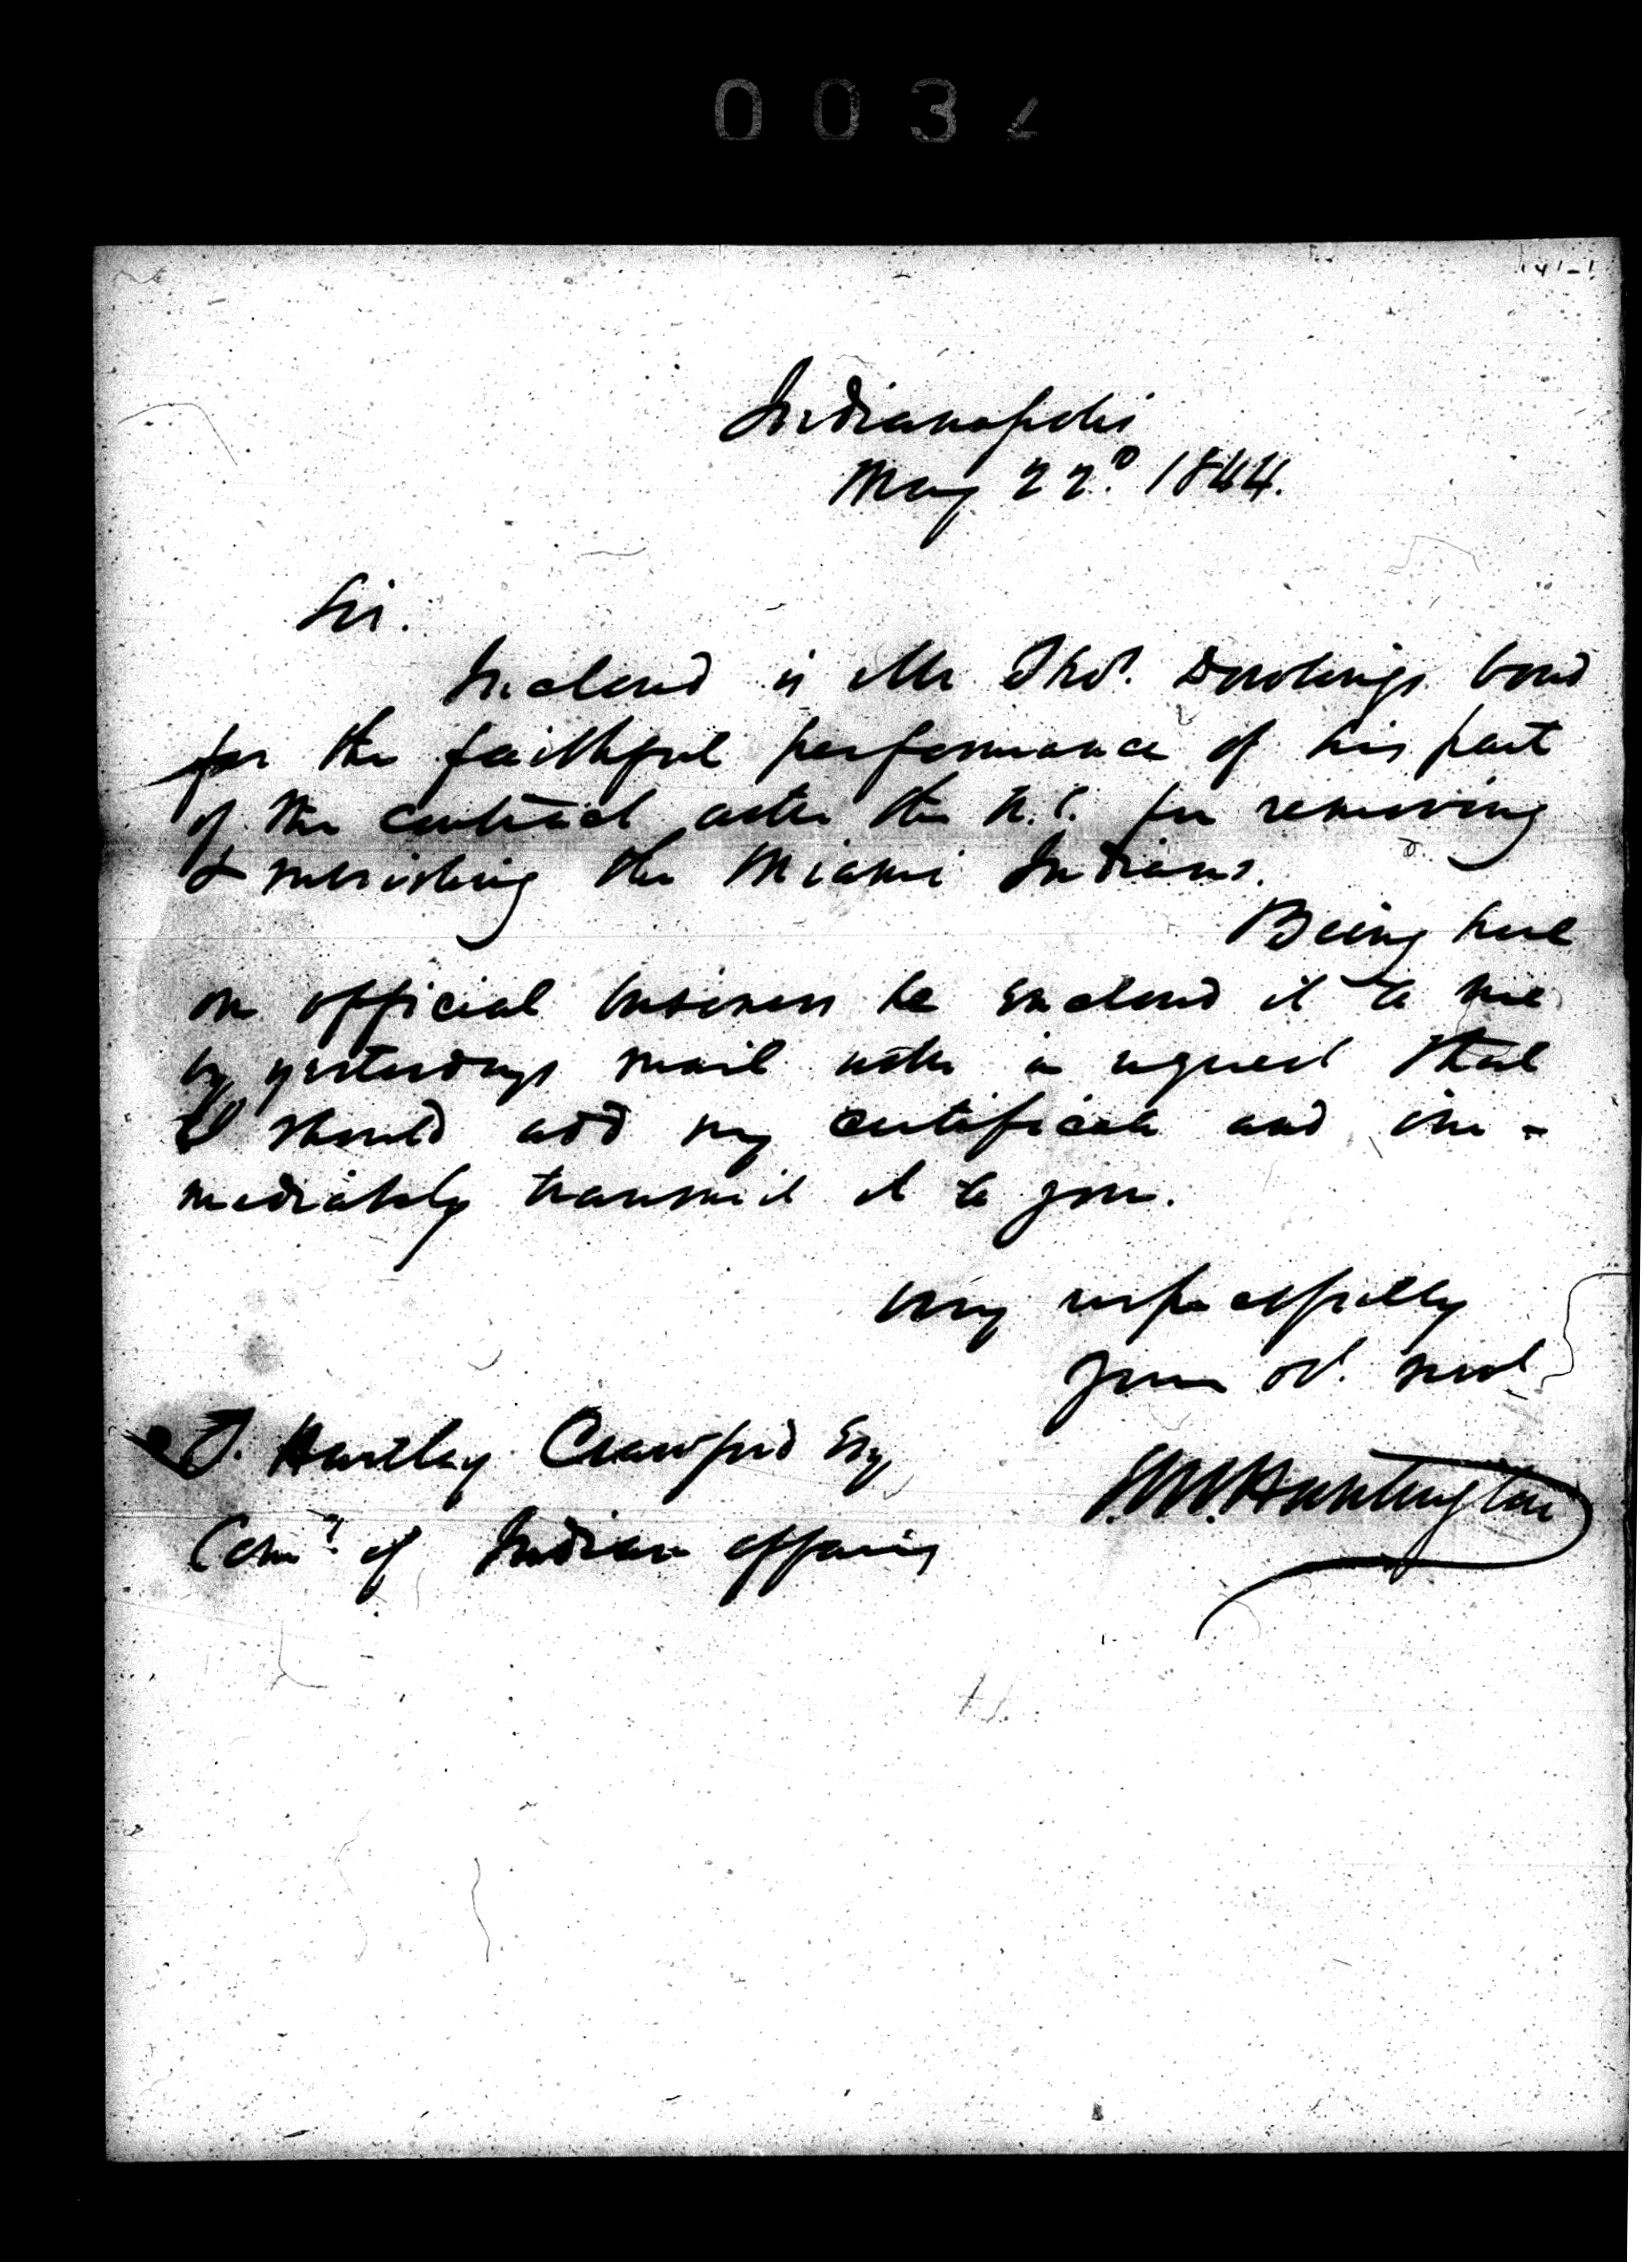 003
Indianapolis
May 22D 1844.
Sir.
Inclosed is Mr Thos. Dowlings bond
for the faithful performance of his part
of the contract with the U.S. for removing
& subsisting the Miami Indians.
Being here
on official business he enclosed it to me
by yesterdays mail with a request that
I should add my certificate and im-
mediately transmit it to you.
Very respectfully
Your ob. servt
T. Hartley Crawford Esq
Comr. of Indian affairs
E.M. Huntington